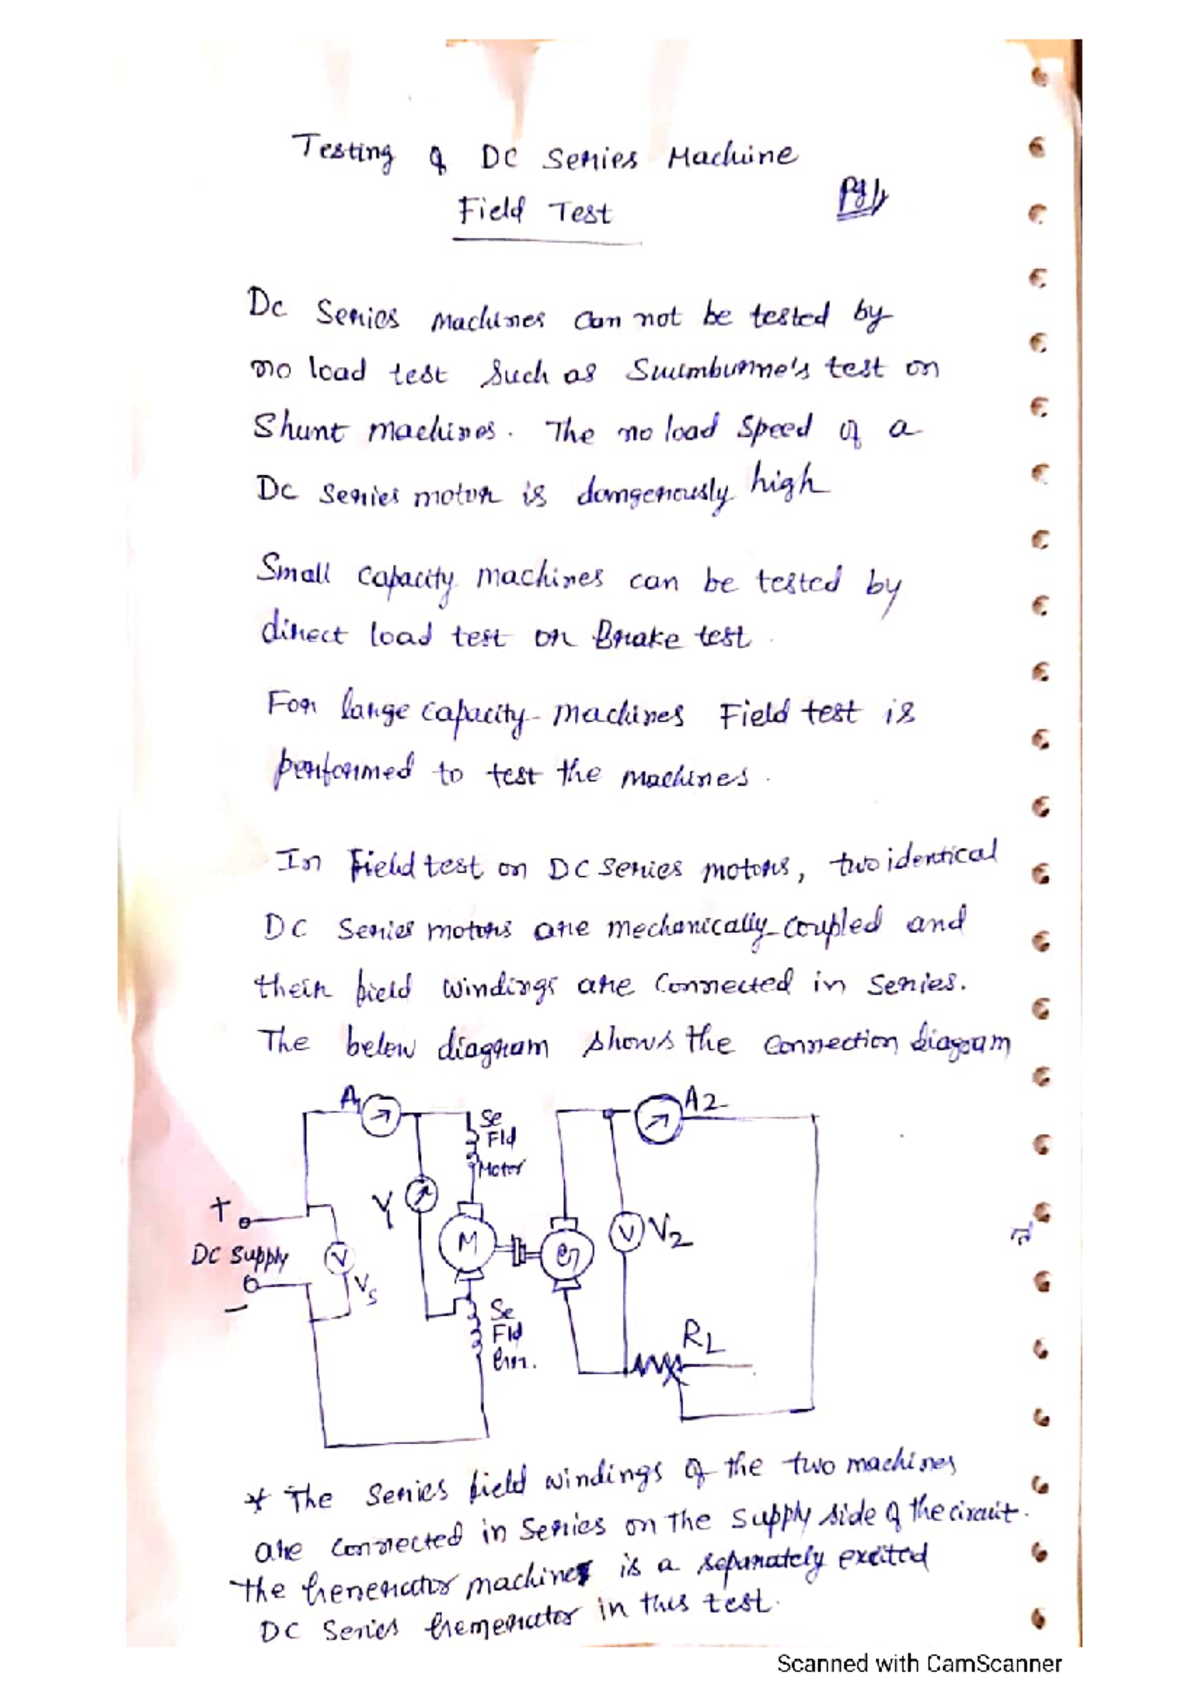 Testing of DC Series Machine
Field Test
Dc Series Machines can not be tested by
no load test Such as Swinburne's test on
Shunt machines. The no load Speed of a
Dc series motor is dangerously high
Small capacity machines can be tested by
direct load test or Brake test.
For large capacity machines Field test is
performed to test the machines.
In Field test on DC Series motors, two identical
DC Series motors are mechanically coupled and
their field windings are Connected in Series.
The below diagram shows the connection diagram
A1
A2
Se
Fld
Motor
+
V
V2
V
M
G
DC Supply
V
Vs
-
Se
Fld
Gen.
RL
* The Series field windings of the two machines
are connected in Series on the Supply side of the circuit.
The Generator machine is a separately excited
DC Series Generator in this test.
Scanned with CamScanner